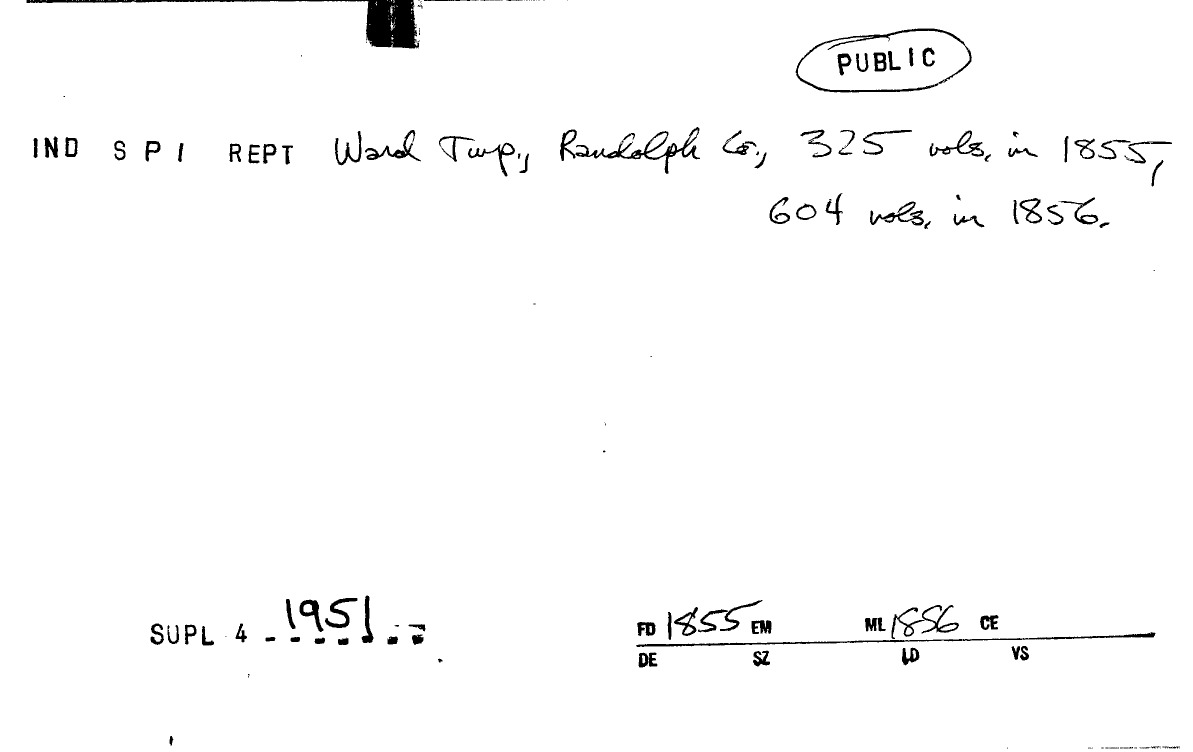 PUBLIC
IND S P I REPT Ward Twp., Randolph Co., 325 vols. in 1855,
604 vols. in 1856.
SUPL 4 1951
FD 1855 EM ML 1856 CE
DE SZ LD VS